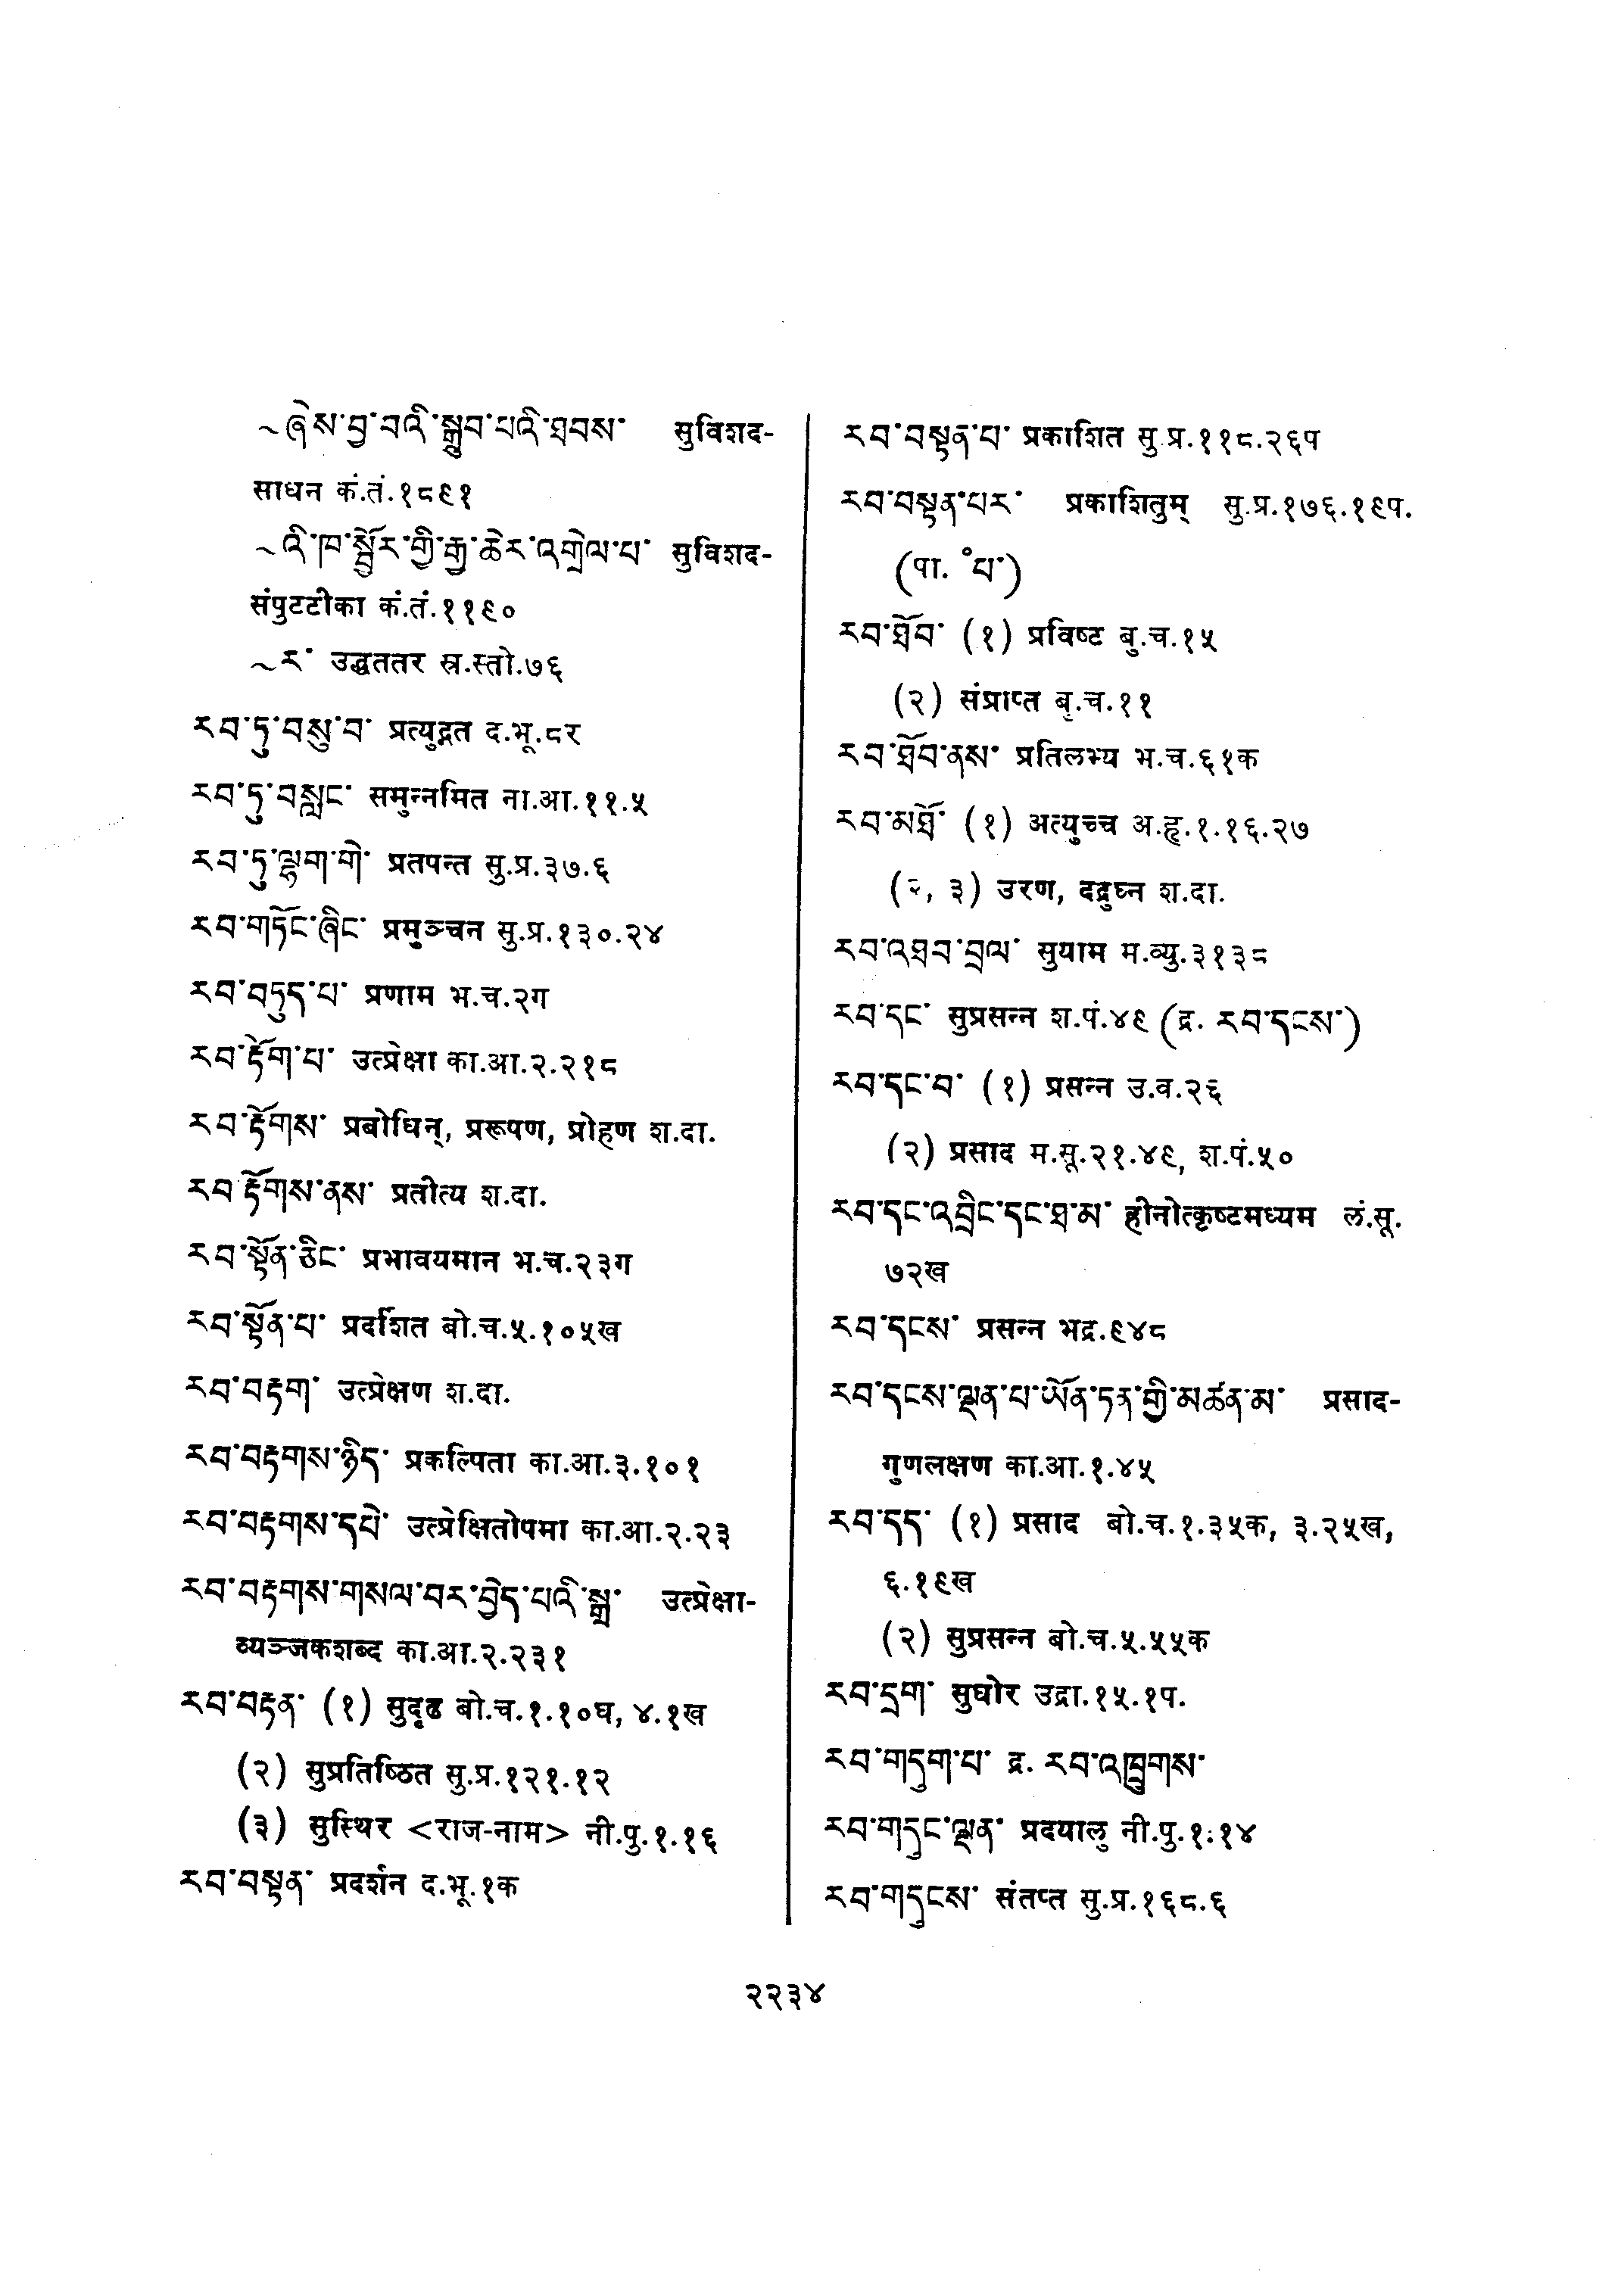 ~ཞེས་བྱ་བའི་སྒྲུབ་པའི་ཐབས་ सुविशद-
साधन कं.तं.१८९१
~འི་ཁ་སྦྱོར་གྱི་རྒྱ་ཆེར་འགྲེལ་པ་ सुविशद-
संपुटटीका कं.तं.११९०
~ར་ उद्धततर स्र.स्तो.७६
རབ་ཏུ་བསུ་བ་ प्रत्युद्गत द.भू.८र
རབ་ཏུ་བསླང་ समुन्नमित ना.आ.११.५
རབ་ཏུ་ལྷག་གེ་ प्रतपन्त सु.प्र.३७.६
རབ་གཏོང་ཞིང་ प्रमुञ्चन सु.प्र.१३०.२४
རབ་བཏུད་པ་ प्रणाम भ.च.२ग
རབ་རྟོག་པ་ उत्प्रेक्षा का.आ.२.२१८
རབ་རྟོགས་ प्रबोधिन्, प्ररूपण, प्रोहण श.दा.
རབ་རྟོགས་ནས་ प्रतीत्य श.दा.
རབ་སྟོན་ཅིང་ प्रभावयमान भ.च.२३ग
རབ་སྟོན་པ་ प्रदर्शित बो.च.५.१०५ख
རབ་བརྟག་ उत्प्रेक्षण श.दा.
རབ་བརྟགས་ཉིད་ प्रकल्पिता का.आ.३.१०१
རབ་བརྟགས་དཔེ་ उत्प्रेक्षितोपमा का.आ.२.२३
རབ་བརྟགས་གསལ་བར་བྱེད་པའི་སྒྲ་ उत्प्रेक्षा-
व्यञ्जकशब्द का.आ.२.२३१
རབ་བརྟན་ (१) सुदृढ बो.च.१.१०घ, ४.१ख
(२) सुप्रतिष्ठित सु.प्र.१२१.१२
(३) सुस्थिर <राज-नाम> नी.पु.१.१६
རབ་བསྟན་ प्रदर्शन द.भू.१क
རབ་བསྟན་པ་ प्रकाशित सु.प्र.११८.२६प
རབ་བསྟན་པར་ प्रकाशितुम् सु.प्र.१७६.१९प.
(पा. ॰པ་)
རབ་ཐོབ་ (१) प्रविष्ट बु.च.१५
(२) संप्राप्त बु.च.११
རབ་ཐོབ་ནས་ प्रतिलभ्य भ.च.६१क
རབ་མཐོ་ (१) अत्युच्च अ.हृ.१.१६.२७
(२, ३) उरण, दद्रुघ्न श.दा.
རབ་འཐབ་བྲལ་ सुयाम म.व्यु.३१३८
རབ་དང་ सुप्रसन्न श.पं.४९ (द्र. རབ་དངས་)
རབ་དང་བ་ (१) प्रसन्न उ.व.२६
(२) प्रसाद म.सू.२१.४९, श.पं.५०
རབ་དང་འབྲིང་དང་ཐ་མ་ हीनोत्कृष्टमध्यम लं.सू.
७२ख
རབ་དངས་ प्रसन्न भद्र.९४८
རབ་དངས་ལྡན་པ་ཡོན་ཏན་གྱི་མཚན་མ་ प्रसाद-
गुणलक्षण का.आ.१.४५
རབ་དད་ (१) प्रसाद बो.च.१.३५क, ३.२५ख,
६.१९ख
(२) सुप्रसन्न बो.च.५.५५क
རབ་དྲག་ सुघोर उद्रा.१५.१प.
རབ་གདུག་པ་ द्र. རབ་འཁྲུགས་
རབ་གདུང་ལྡན་ प्रदयालु नी.पु.१.१४
རབ་གདུངས་ संतप्त सु.प्र.१६८.६
२२३४